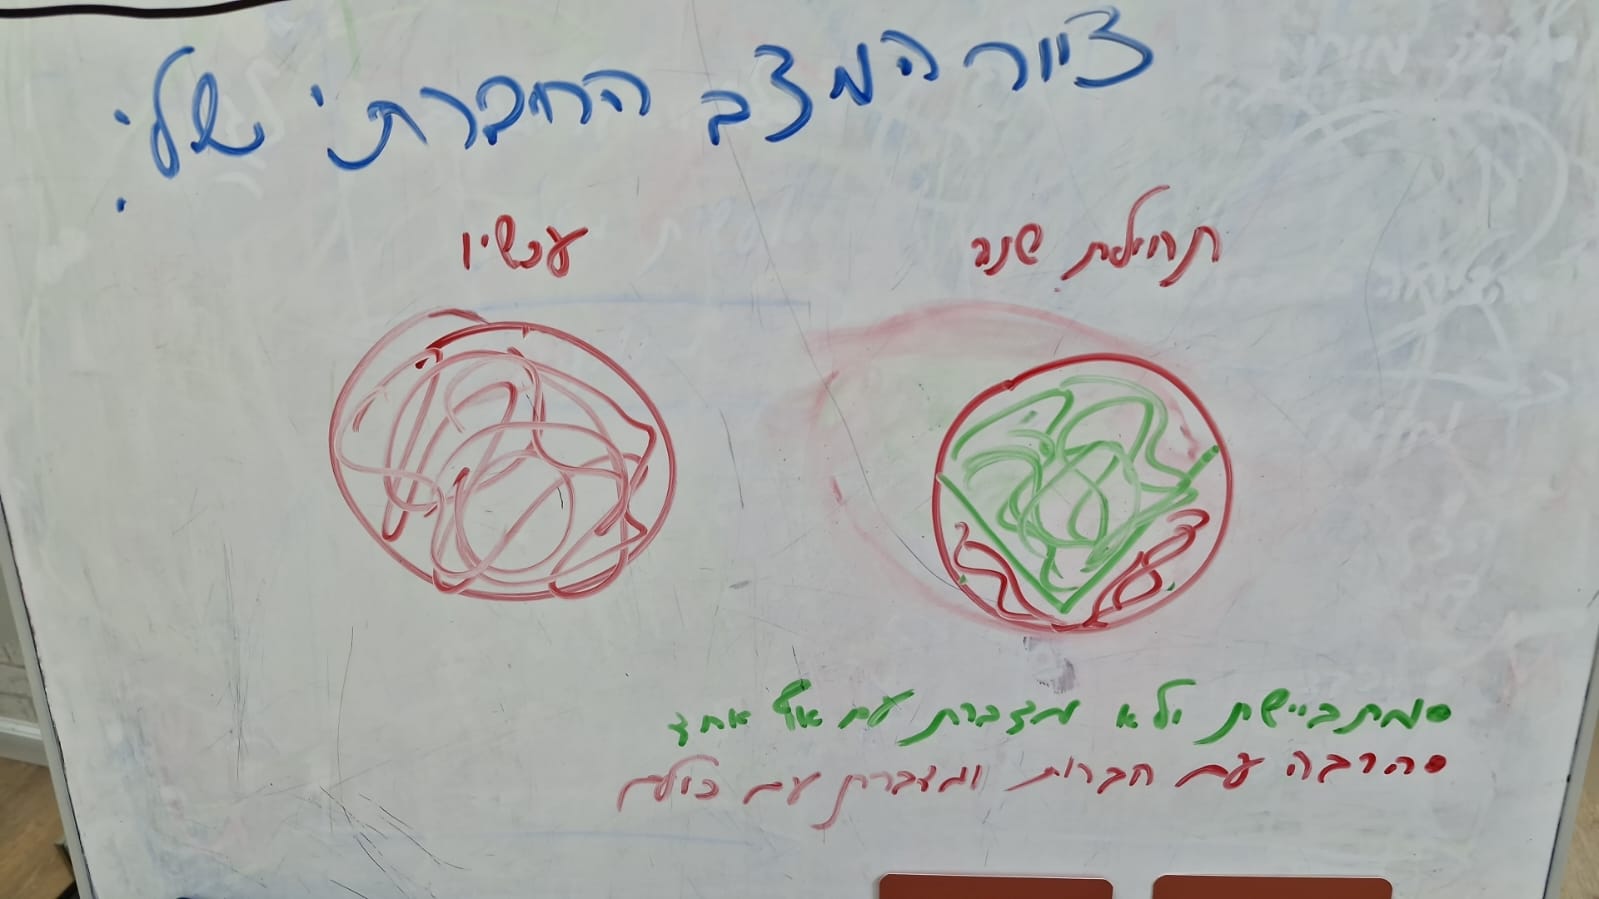 ציור המצב החברתי שלי:
תחילת שנה
עכשיו
מתביישת ולא מדברת עם אף אחד
הרבה עם חברות ומדברת עם כולם